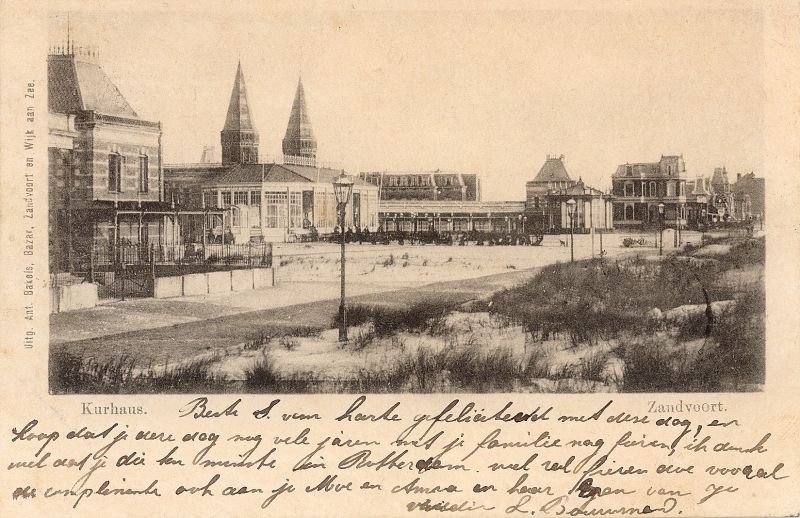 Uitg. Ant. Bakels, Bazar, Zandvoort en Wijk aan Zee.
Kurhaus.
Zandvoort.
Beste S. van harte gefeliciteerd met deze dag, en
hoop dat je deze dag nog vele jaren met je familie mag vieren, ik denk
wel dat je die ten minste in Rotterdam wel zal vieren
de complimenten ook aan je Moe en en haar van je
L.